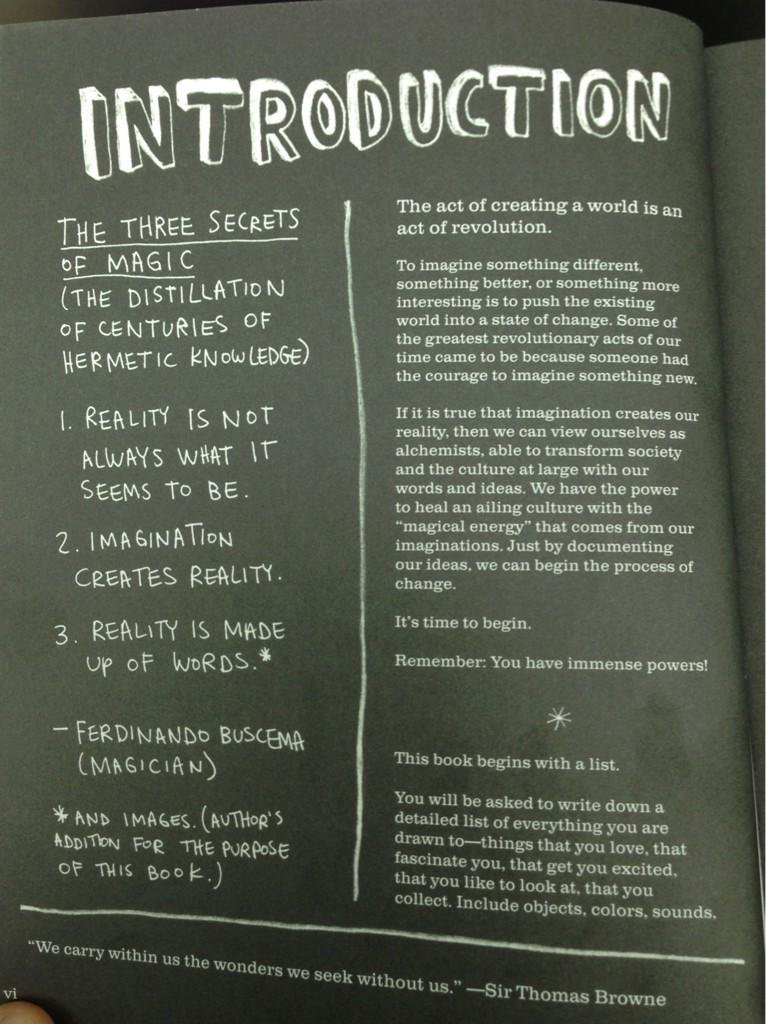 INTRODUCTION
THE THREE SECRETS
OF MAGIC
(THE DISTILLATION
OF CENTURIES OF
HERMETIC KNOWLEDGE)
1. REALITY IS NOT
ALWAYS WHAT IT
SEEMS TO BE.
2. IMAGINATION
CREATES REALITY.
3. REALITY IS MADE
UP OF WORDS.*
— FERDINANDO BUSCEMA
(MAGICIAN)
* AND IMAGES. (AUTHOR'S
ADDITION FOR THE PURPOSE
OF THIS BOOK.)
The act of creating a world is an
act of revolution.
To imagine something different,
something better, or something more
interesting is to push the existing
world into a state of change. Some of
the greatest revolutionary acts of our
time came to be because someone had
the courage to imagine something new.
If it is true that imagination creates our
reality, then we can view ourselves as
alchemists, able to transform society
and the culture at large with our
words and ideas. We have the power
to heal an ailing culture with the
“magical energy” that comes from our
imaginations. Just by documenting
our ideas, we can begin the process of
change.
It’s time to begin.
Remember: You have immense powers!
*
This book begins with a list.
You will be asked to write down a
detailed list of everything you are
drawn to—things that you love, that
fascinate you, that get you excited,
that you like to look at, that you
collect. Include objects, colors, sounds,
“We carry within us the wonders we seek without us.” —Sir Thomas Browne
vi